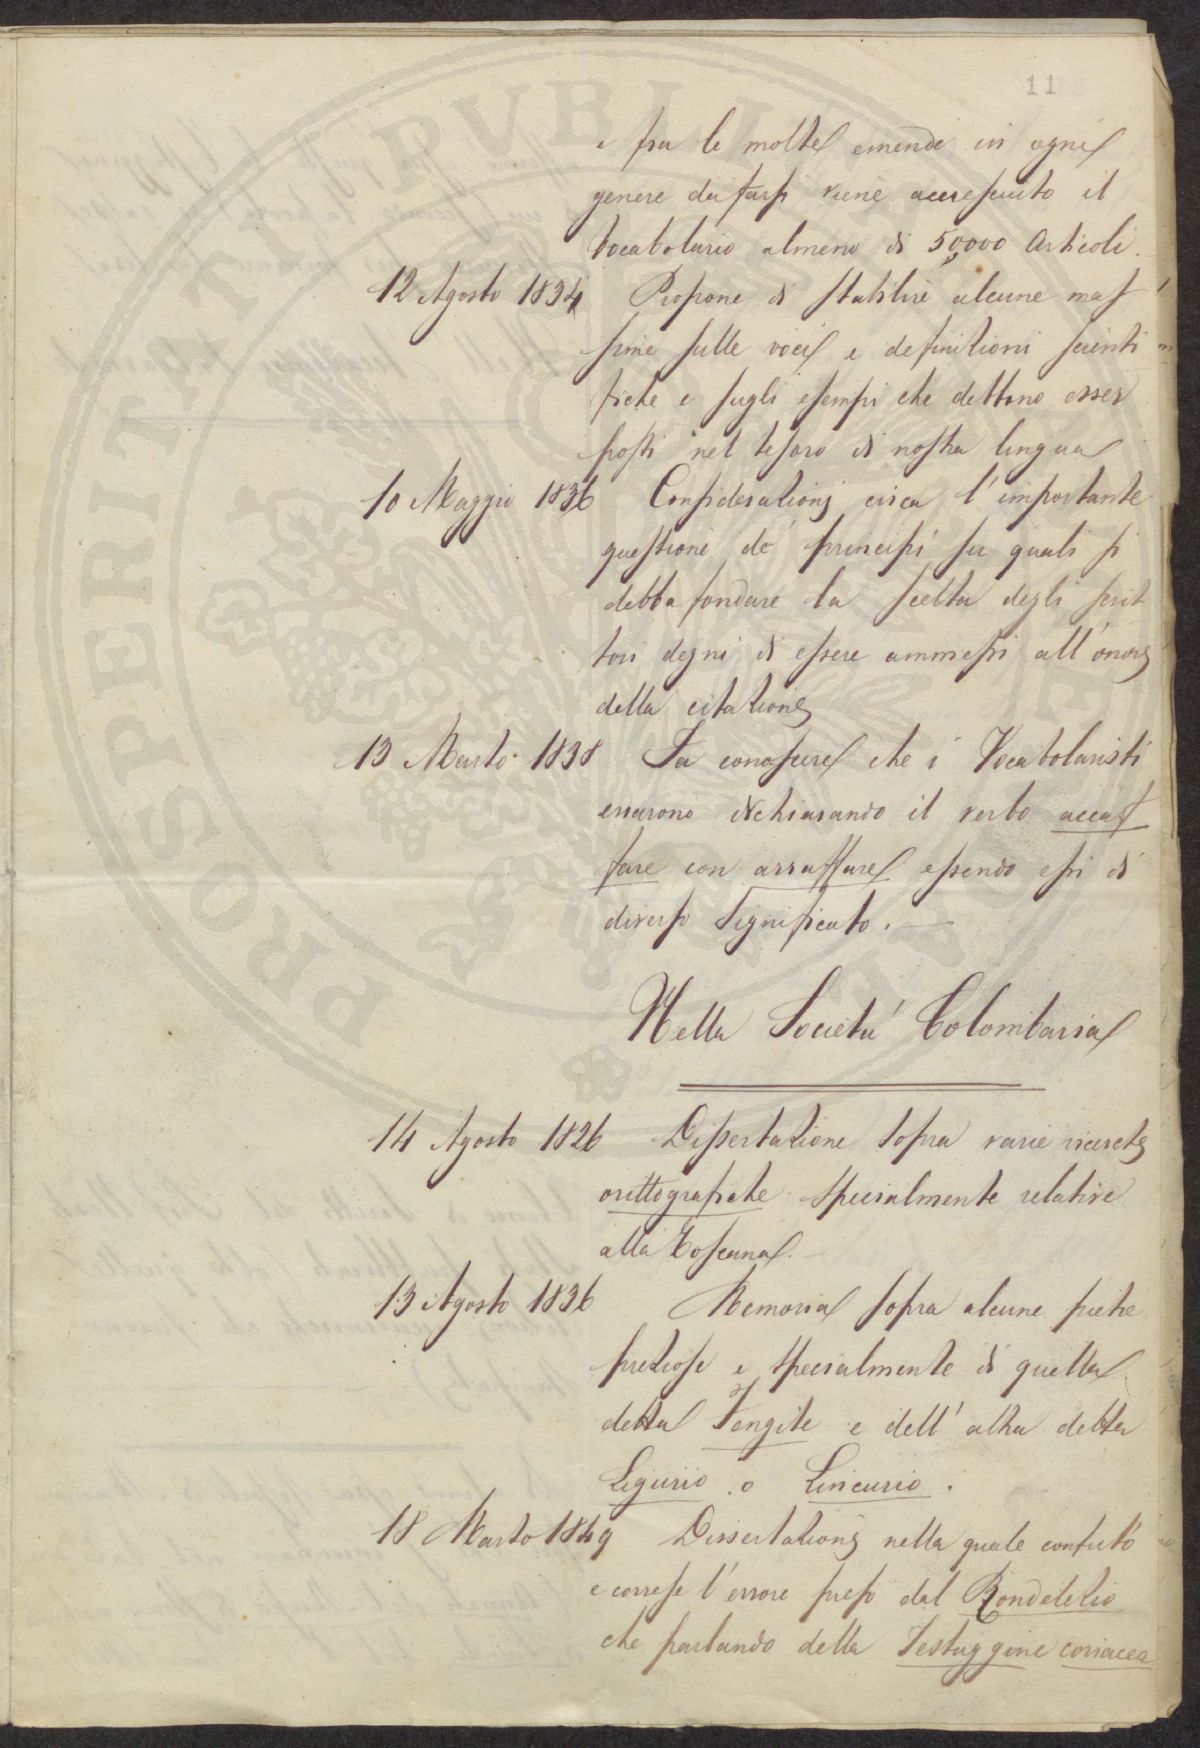 11
e fra le molte emende in ogni
genere da farsi viene accresciuto il
Vocabolario almeno di 50000 Articoli.
12 Agosto 1834 Propone di stabilire alcune mas
sime sulle voci e definizioni scienti
fiche e sugli esempi che debbono esser
posti nel tesoro di nostra lingua
10 Maggio 1836 Considerazioni circa l'importante
questione de' principi su quali si
debba fondare la scelta degli scrit
tori degni di essere ammessi all'onore
della citazione
13 Marzo 1838 Fa conoscere che i Vocabolaristi
errarono dichiarando il verbo accaf
fare con arraffare essendo essi di
diverso significato.
Nella Società Colombaria
14 Agosto 1826 Dissertazione sopra varie ricerche
orittografiche specialmente relative
alla Toscana.
13 Agosto 1836 Memoria sopra alcune pietre
preziose e specialmente di quella
detta Fengite e dell'altra detta
Ligurio o Lincurio.
18 Marzo 1849 Dissertazione nella quale confutò
e corresse l'errore preso dal Rondelezio
che parlando della Testuggine coriacea
PROSPERITAT PVBLI